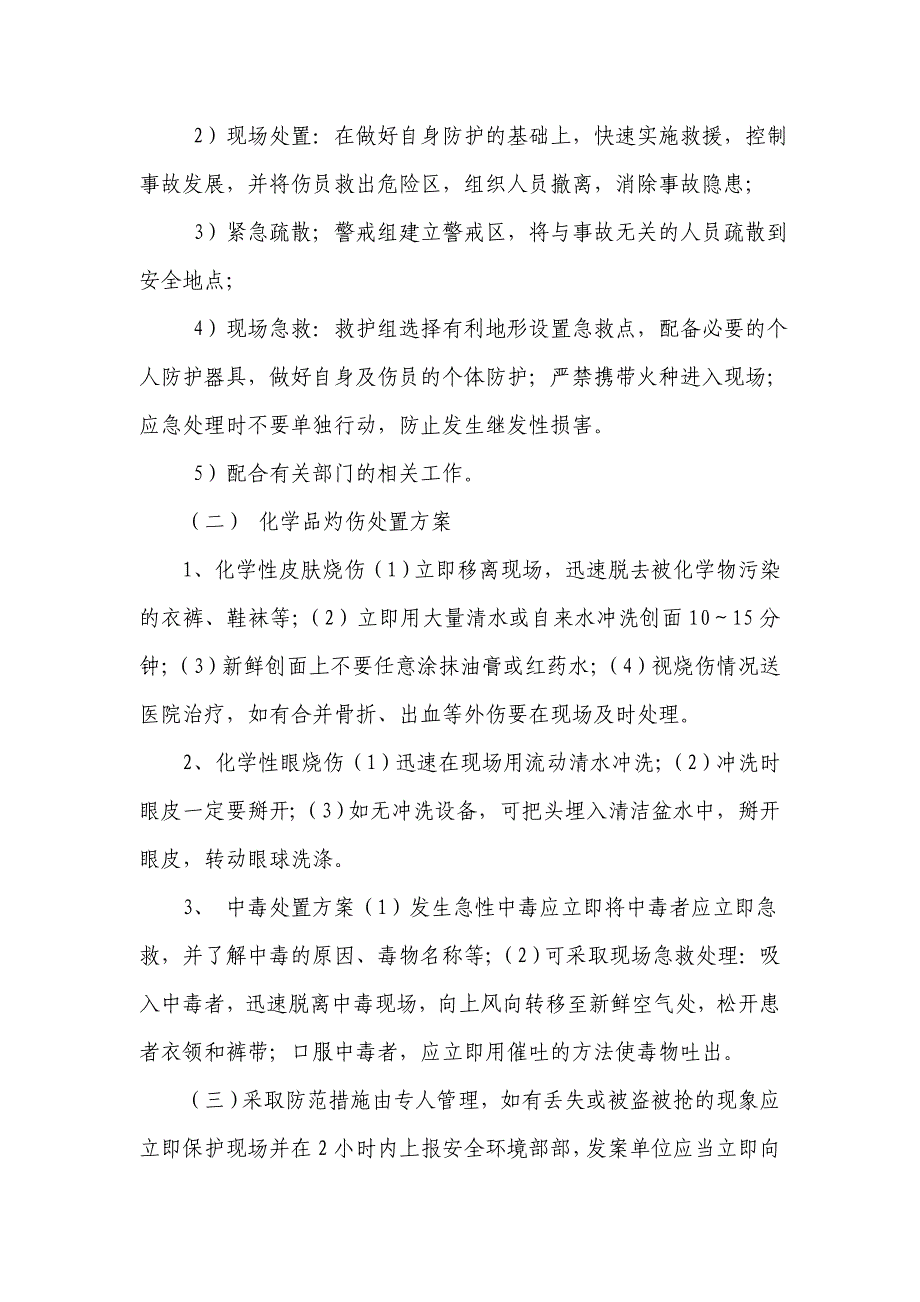 2）现场处置：在做好自身防护的基础上，快速实施救援，控制
事故发展，并将伤员救出危险区，组织人员撤离，消除事故隐患；
3）紧急疏散；警戒组建立警戒区，将与事故无关的人员疏散到
安全地点；
4）现场急救：救护组选择有利地形设置急救点，配备必要的个
人防护器具，做好自身及伤员的个体防护；严禁携带火种进入现场；
应急处理时不要单独行动，防止发生继发性损害。
5）配合有关部门的相关工作。
（二） 化学品灼伤处置方案
1、化学性皮肤烧伤（1）立即移离现场，迅速脱去被化学物污染
的衣裤、鞋袜等；（2）立即用大量清水或自来水冲洗创面 10～15 分
钟；（3）新鲜创面上不要任意涂抹油膏或红药水；（4）视烧伤情况送
医院治疗，如有合并骨折、出血等外伤要在现场及时处理。
2、化学性眼烧伤（1）迅速在现场用流动清水冲洗；（2）冲洗时
眼皮一定要掰开；（3）如无冲洗设备，可把头埋入清洁盆水中，掰开
眼皮，转动眼球洗涤。
3、 中毒处置方案（1）发生急性中毒应立即将中毒者应立即急
救，并了解中毒的原因、毒物名称等；（2）可采取现场急救处理：吸
入中毒者，迅速脱离中毒现场，向上风向转移至新鲜空气处，松开患
者衣领和裤带；口服中毒者，应立即用催吐的方法使毒物吐出。
（三）采取防范措施由专人管理，如有丢失或被盗被抢的现象应
立即保护现场并在 2 小时内上报安全环境部部，发案单位应当立即向